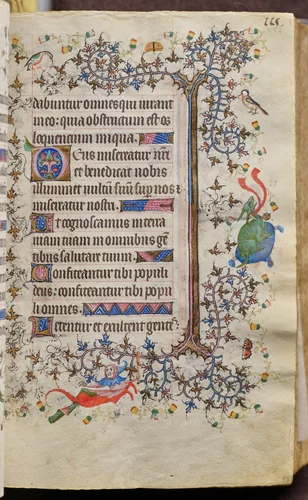 dabuntur omnes qui iurant
in eo: quia obstructum est os
loquencium iniqua.
Deus misereatur nr̄i
et benedicat nobis
illuminet vultū suū sup nos ⁊
miseratur nostri.
Ut cognoscamus in terra
uiam tuam in omnibus gē
tibus salutare tuum.
Confiteantur tibi populi
deus: confiteantur tibi popu
li omnes.
Letentur et exultent gente